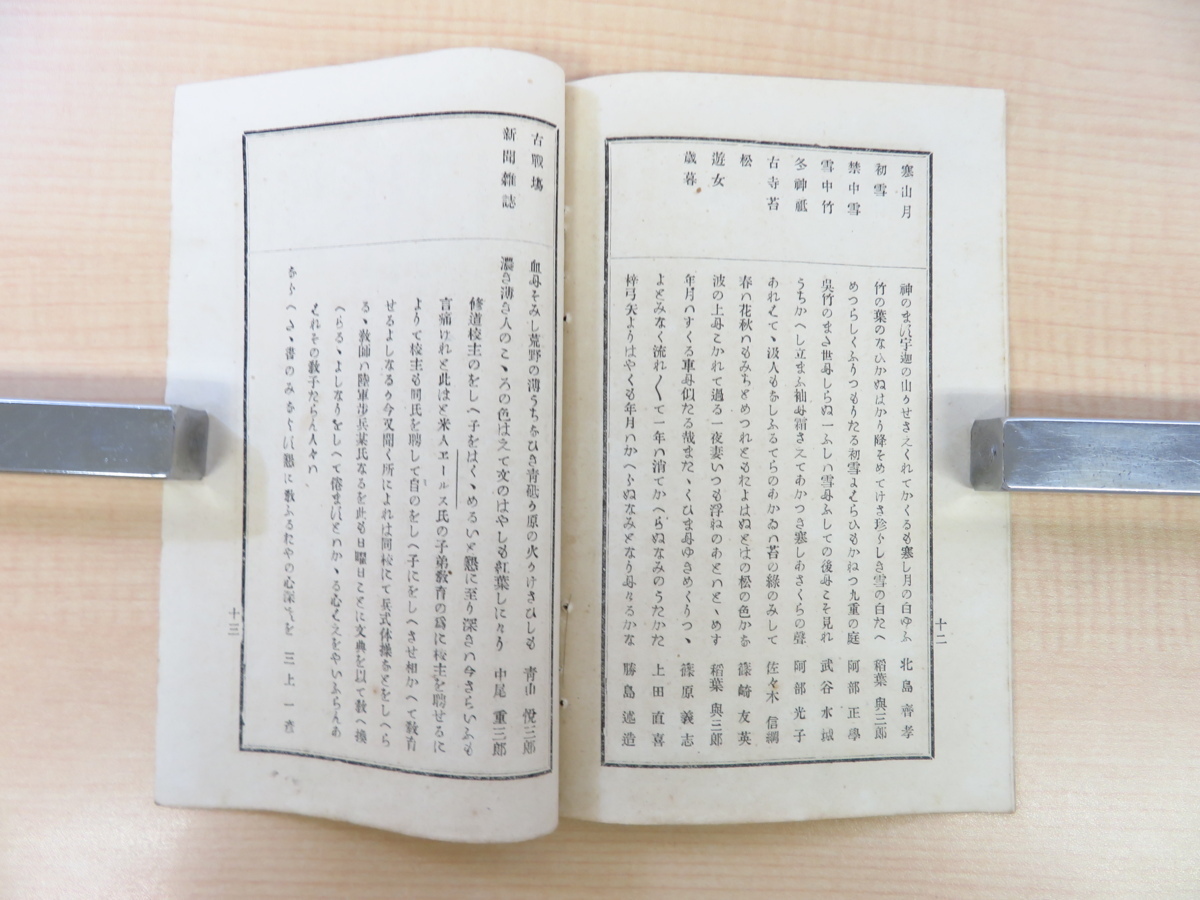 寒山月 神のます宇迦の山かせさえくれてかくるも寒し月の白ゆふ 北島齊孝
初雪 竹の葉のなひかぬはかり降そめてけさ珍らしき雪の白たへ 稻葉與三郎
禁中雪 めつらしくふりつもりたる初雪によらひもかねつ九重の庭 阿部正學
雪中竹 呉竹のまさ世にしらぬ一ふしハ雪にふしての後にこそ見れ 武谷水城
冬神祗 うちかへし立まふ袖に霜さえてあかつき寒しあさくらの聲 阿部光子
古寺苔 あれはてゝ汲人もなしふるてらのあかゐの苔の綠のみして 佐々木信綱
松 春ハ花秋ハもみちとめつれともかよはぬとはの松の色かな 篠崎友英
遊女 波の上にこかれて過る一夜妻いつも浮ねのあといとゝめす 稻葉與三郎
歳暮 年月ハすくる車に似たる哉またゝくひまにゆきめくりつゝ 篠原義志
よとみなく流れ〱て一年ハ消てかへらぬなみのうたかた 上田直喜
梓弓矢よりはやくも年月ハかへらぬなみとなりにけるかな 勝島遙造
十二
古戰塲 血にそみし荒野の薄うちなひき靑砥か原の火かけさひしも 靑山悅三郎
新聞雜誌 濃き薄き人のこゝろの色はえて文のはやしも紅葉しにけり 中尾重三郎
修道校主のをしへ子をはくゝめるいと懇に至り深きハ今さらいふも
言痛けれと此ほと米人エールス氏の子弟敎育の爲に校主を聘せるに
よりて校主も同氏を聘して自のをしへ子にをしへさせ相かへて敎育
せるよしなるか今又聞く所によれは同校にて兵式体操をとをしへら
る敎師ハ陸軍步兵某氏なるを此も日曜日ことに文典を以て敎へ換
へらるゝよしなりをしへて倦ますとハかゝる心はえをやいふらんあ
はれその敎子たらん人々ハ
ならへさゝ書のみならす懇に敎ふるおやの心深さを 三上一彥
十三